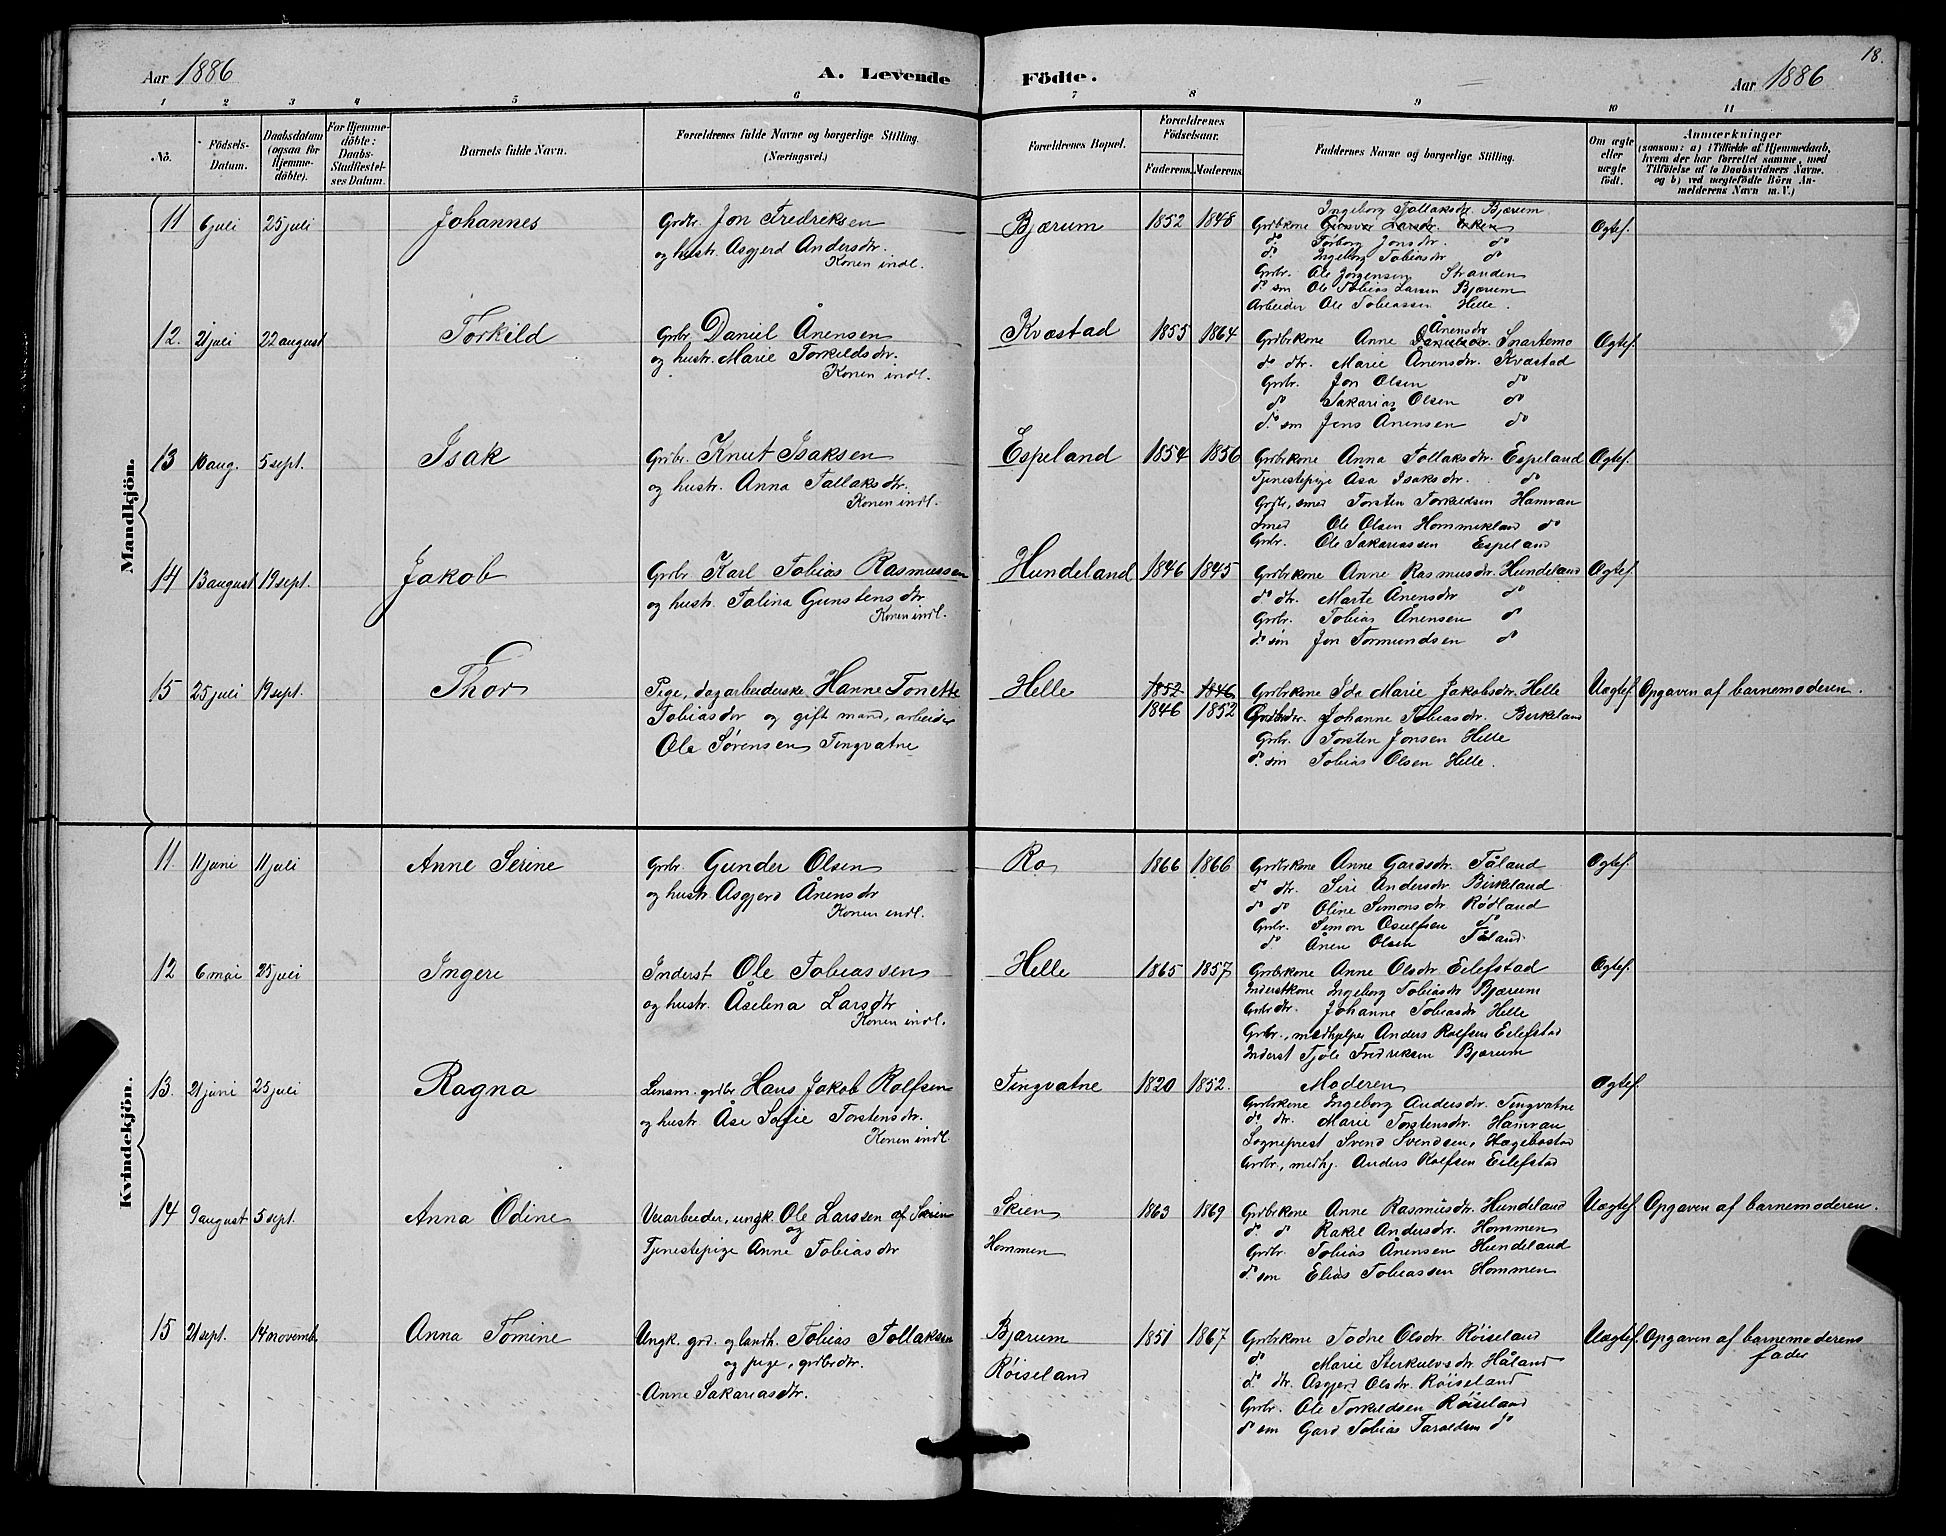 18.
Aar 1886
A. Levende Födte.
Aar 1886
1 2 3 4 5 6 7 8 9 10 11
No.
Födsels-Datum.
Daabsdatum (ogsaa for Hjemme-döbte).
For Hjemme-döbte: Daabs-Stadfæstel-ses Datum.
Barnets fulde Navn.
Forældrenes fulde Navne og borgerlige Stilling.
(Næringsvei.)
Forældrenes Bopæl.
Forældrenes Födselsaar.
Faderens. Moderens.
Faddernes Navne og borgerlige Stilling.
Om ægte eller uægte födt.
Anmærkninger
(saasom: a) i Tilfælde af Hjemmedaab,
hvem der har forrettet samme, med
Tilföielse af to Daabsvidners Navne.
og b) ved uægtefödte Börn An-
melderens Navn m. V.)
Mandkjön.
11 6 juli 25 juli Johannes
Grdbr. Jon Fredreksen
og hustr. Asgjerd Andersdtr.
Konen indl.
Bjærum 1852 1848
Ingeborg Tollaksdtr. Bjærum
Grdbrkone Larsdtr.
do. Torborg Jonsdtr. do
do. Ingeborg Tobiasdtr do
Grbr. Ole Jörgensen Stranden
do. sön Ole Tobias Larsen Bjærum
Arbeider Ole Tobiassen Helle.
Ægtef.
12. 21 juli 22 august Torkild
Grbr. Daniel Ånensen
og hustr. Marie Torkildsdtr.
Konen indl.
Kvæstad 1855 1864
Ånensdtr
Grdbrkone Anne Danielsdtr. Snartemo
do dtr. Marie Ånensdtr. Kvæstad
Grbr. Jon Olsen do
do Sakarias Olsen do
do. sön Jens Ånensen do
Ægtef.
13 16 aug. 5 sept. Isak
Grbr. Knut Isaksen
og hustr. Anna Tallaksdtr.
Konen indl.
Espeland 1854 1856
Grbrkone Anna Tollaksdtr. Espeland
Tjenestepige Åsa Isaksdtr. do
Grdbr, smed Torsten Torkildsen Hamran
Smed Ole Olsen Hommekland do
Grbr. Ole Sakariassen Espeland
Ægtef.
14 13 august 19 sept. Jakob
Grdbr Karl Tobias Rasmussen
og hustr. Talina Gunstensdtr
Konen indl.
Hundeland 1846 1845
Grdbrkone Anne Rasmusdtr. Hundeland
do dtr. Marte Ånensdtr do
Grbr. Tobias Ånensen do
do. sön Jon Tormundsen do
Ægtef.
15 25 juli 19 sept. Thor
Pige, dagarbeiderske Hanne Tonette
Tobiasdtr og gift mand, arbeider
Ole Sørensen Tingvatne
Helle 1852 1846
1846 1852
Grbrkone Ida Marie Jakobsdtr. Helle
Grdbrdtr. Johanne Tobiasdtr. Birkeland
Grbr. Torsten Jonsen Helle
do. sön Tobias Olsen Helle.
Uægtef. Opgaven af barnemoderen.
Kvindekjön.
11. 11 juni 11 juli Anne Serine
Grbr. Gunder Olsen
og hustr. Asgjerd Ånensdtr
Konen indl.
Ro 1866 1866
Grdbrkone Anne Gardsdtr. Tåland
do dtr. Siri Andersdtr. Birkeland
do do Oline Simonsdtr Rødland
Grbr. Simon Osulfsen do
do. Ånen Olsen Tåland
Ægtef.
12 6 mai 25 juli Ingeri
Inderst Ole Tobiassen
og hustr. Åselena Larsdtr
Konen indl.
Helle 1865 1857
Grdbrkone Anne Olsdtr Eilefstad
Inderstkone Ingeborg Tobiasdtr Bjærum
Grbrdtr. Johanne Tobiasdtr Helle
Grbr., medhjelper Anders Rolfsen Eilefstad
Inderst Tjöl Fredriksen Bjærum
Ægtef.
13. 21 juni 25 juli Ragna
Lensm. grdbr Hans Jakob Rolfsen
og hustr. Åse Sofie Torstensdtr.
Konen indl.
Tingvatne 1820 1852.
Moderen
Grdbrkone Ingeborg Andersdtr. Tingvatne
do. dtr. Marie Torstensdtr. Hamran
Sogneprest Svend Svendsen, Hægebostad
Grbr., medhj. Anders Rolfsen Eilefstad
Ægtef.
14 9 august 5 sept. Anna Odine
Veiarbeider, ungk. Ole Larssen af Skien
og
Tjenestepige Anne Tobiasdtr
Skien
Hommen
1863 1869
Grdbrkone Anne Rasmusdtr. Hundeland
do. do Rakel Andersdtr. Hommen
Grbr. Tobias Ånensen Hundeland
do. sön Elias Tobiassen Hommen
Uægtef. Opgaven af barnemoderen.
15 21 sept. 14 novemb. Anna Tomine
Ungk. grd. og landh. Tobias Tollaksen
og pige, grdbrdtr.
Anne Sakariasdtr.
Bjærum
Röiseland
1851 1867
Grdbrkone Todne Olsdtr. Röiseland
do Marie Sterkulvsdtr. Håland
do. dtr. Asgjerd Olsdtr. Röiseland
Grbr. Ole Torkildsen Röiseland
do sön Gard Tobias Taraldsen do
Uægtef. Opgaven af barnemoderens
fader